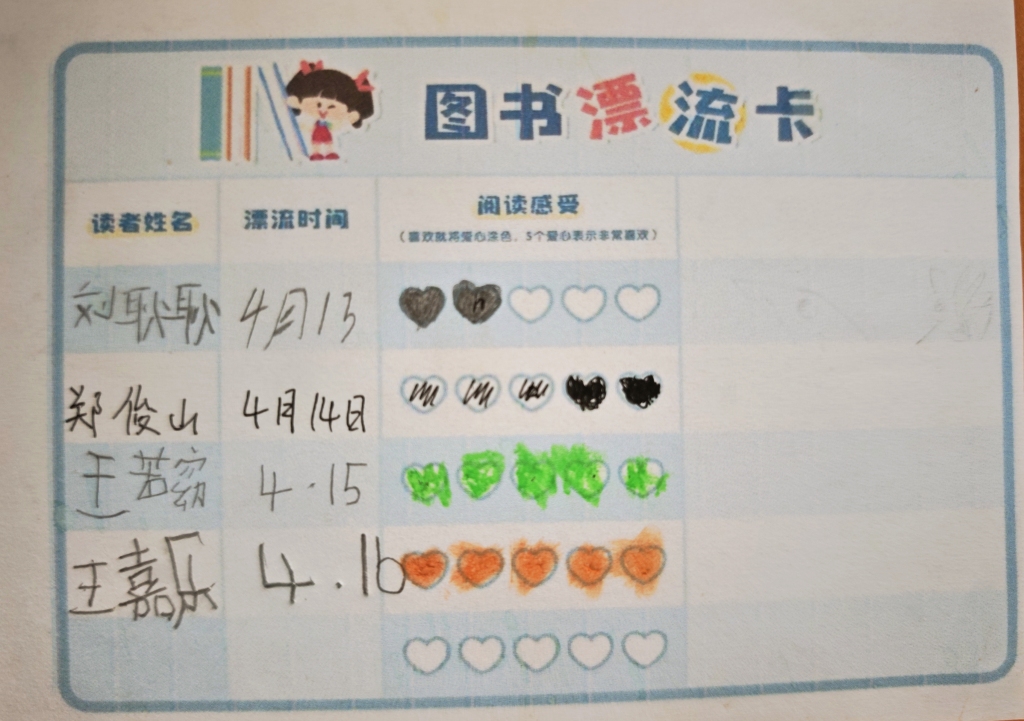 图书漂流卡
读者姓名 漂流时间 阅读感受
（喜欢就将爱心涂色，5个爱心表示非常喜欢）
刘耿耿 4月13
郑俊山 4月14日
王若窈 4.15
王嘉乐 4.16